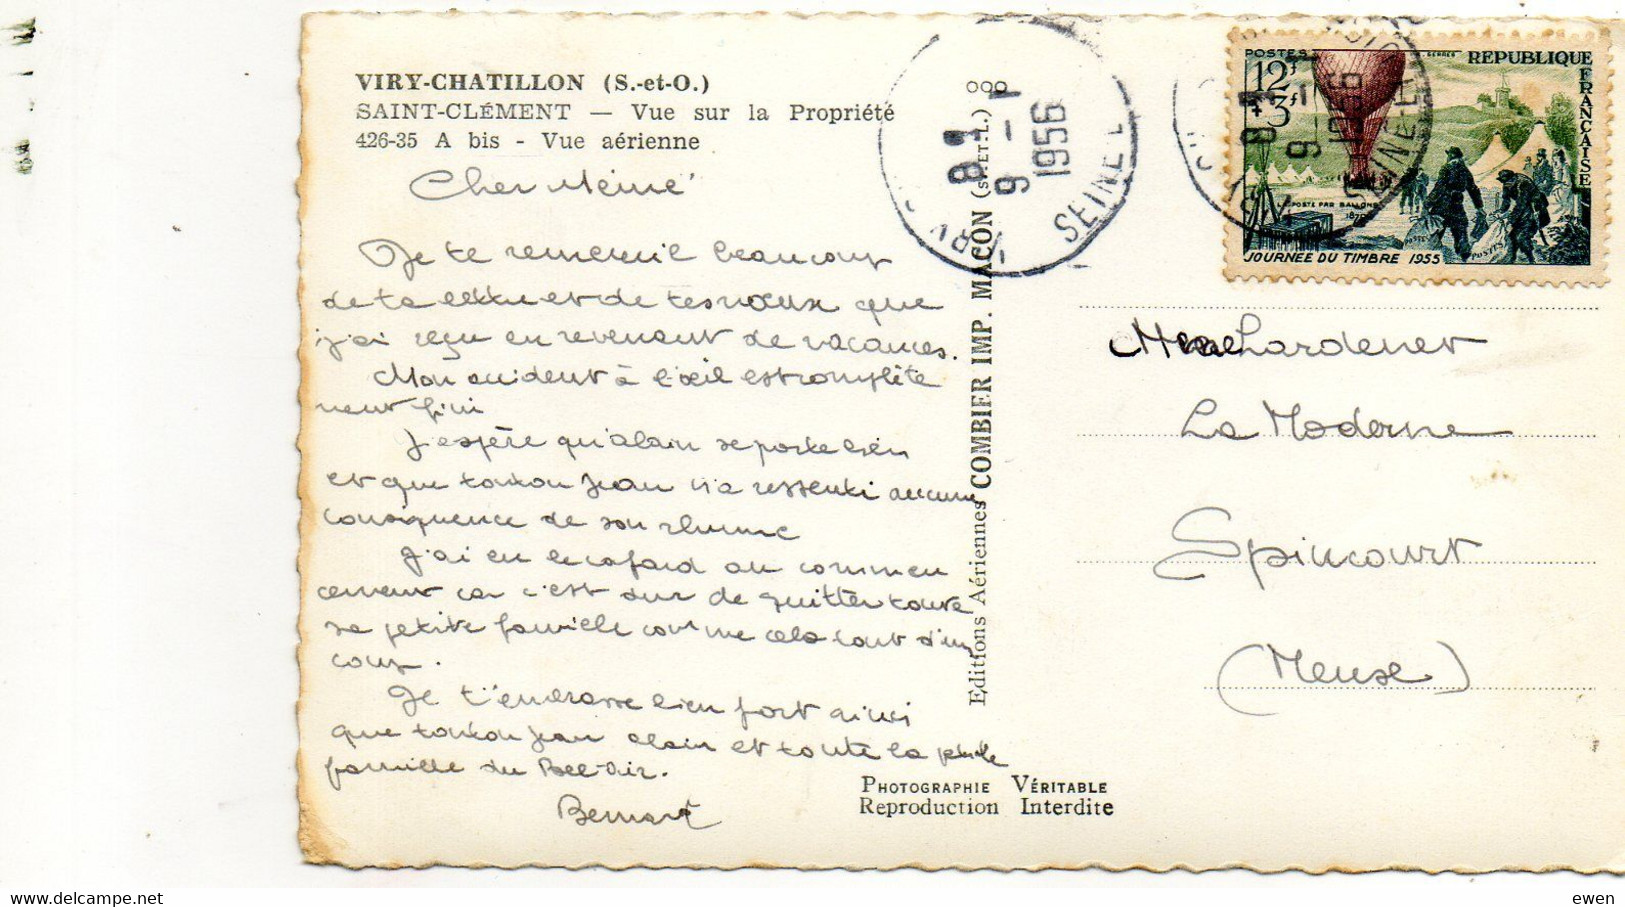 VIRY-CHATILLON (S.-et-O.)
SAINT-CLÉMENT — Vue sur la Propriété
426-35 A bis - Vue aérienne
Cher
Je te remercie beaucoup
de ta lettre et de tes voeux que
j'ai reçu en revenant de vacances.
Mon accident à l'oeil est complète
ment fini
J'espère qu'alain se porte bien
et que tonton Jean n'a ressenti aucune
conséquence de son rhume
J'ai eu le cafard au commen
cement car c'est dur de quitter toute
sa petite famille comme cela tout d'un
coup.
Je t'embrasse bien fort ainsi
que tonton Jean alain et toute la petite
famille du Bel-Air.
Bernard
Editions Aériennes COMBIER IMP. MACON (S.-ET-L.)
PHOTOGRAPHIE VÉRITABLE
Reproduction Interdite
8 H
9 - 1
1956
VIRY
SEINE
POSTES
12F
+3F
REPUBLIQUE
FRANÇAISE
LA POSTE PAR BALLONS
1870
JOURNÉE DU TIMBRE 1955
Lardenet
La Moderne
Spincourt
(Meuse)
ewen